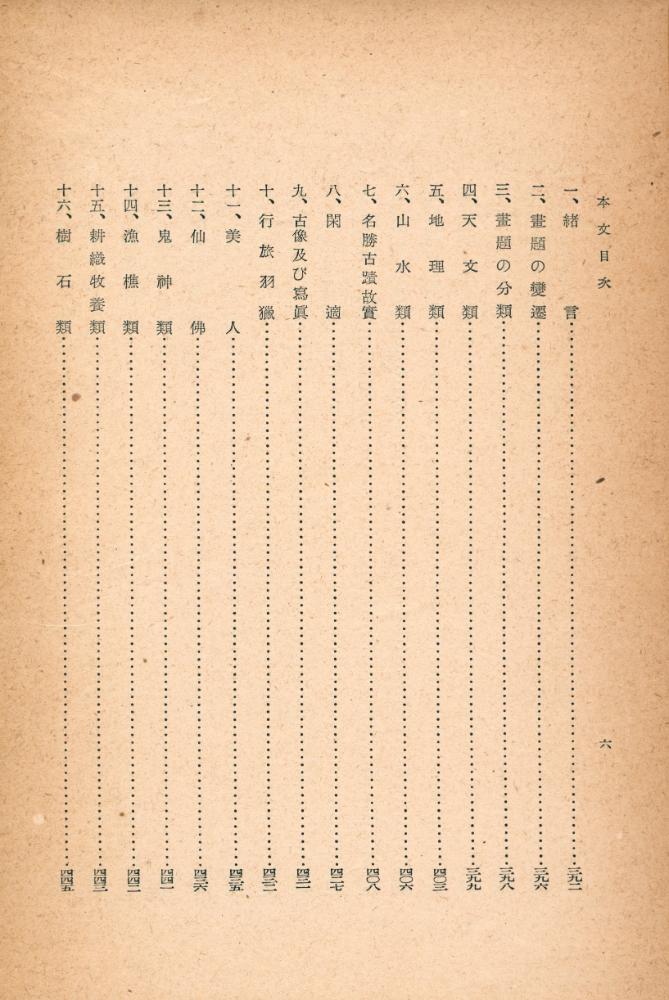 本文目次
六
一、緖言……三九二
二、畫題の變遷……三九六
三、畫題の分類……三九八
四、天文類……三九九
五、地理類……四〇三
六、山水類……四〇六
七、名勝古蹟故實……四〇八
八、閑適……四二七
九、古像及び寫眞……四三一
十、行旅羽獵……四三二
十一、美人……四三五
十二、仙佛……四三六
十三、鬼神類……四四一
十四、漁樵類……四四二
十五、耕織牧養類……四四三
十六、樹石類……四四五